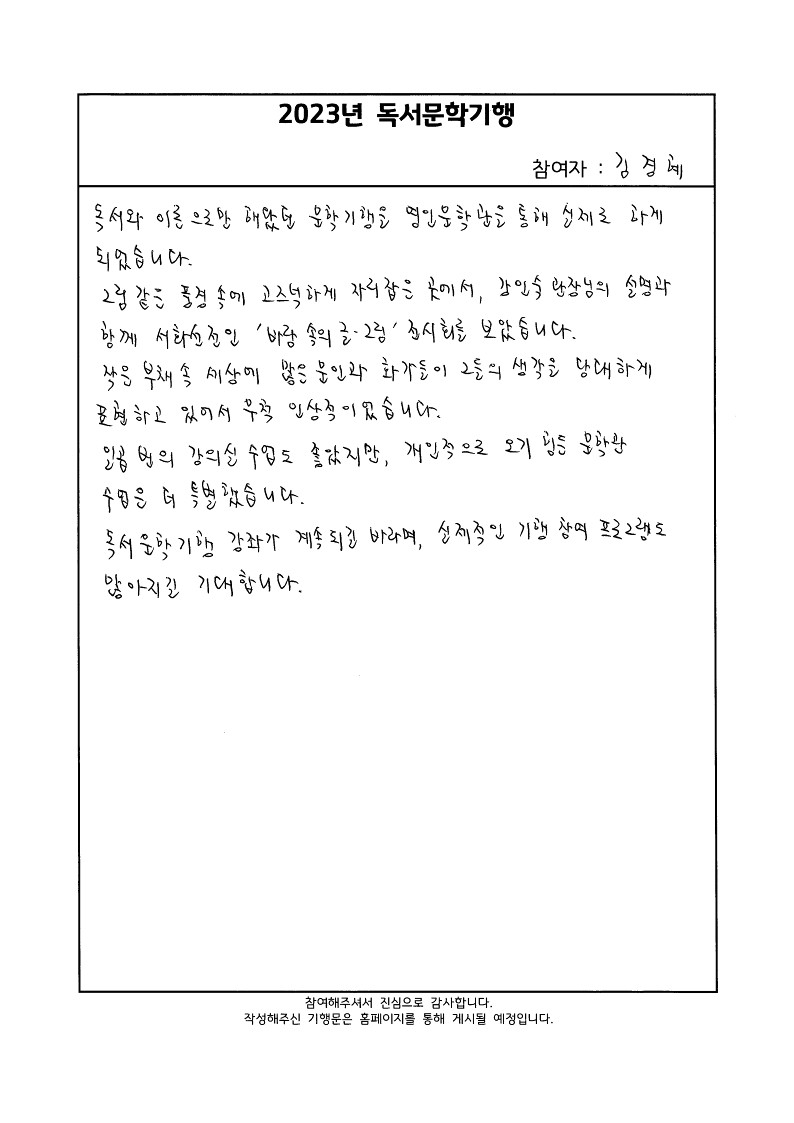 2023년 독서문학기행
참여자 : 김경혜
독서와 이론으로만 해왔던 문학기행을 영인문학관을 통해 실제로 하게
되었습니다.
그림같은 풍경 속에 고즈넉하게 자리잡은 곳에서, 강인숙 관장님의 설명과
함께 서화선전인 '바람 속의 글·그림' 전시회를 보았습니다.
작은 부채 속 세상에 많은 문인과 화가들이 그들의 생각을 담대하게
표현하고 있어서 무척 인상적이었습니다.
일곱 번의 강의실 수업도 좋았지만, 개인적으로 오기 힘든 문학관
수업은 더 특별했습니다.
독서문학기행 강좌가 계속되길 바라며, 실제적인 기행 참여 프로그램도
많아지길 기대합니다.
참여해주셔서 진심으로 감사합니다.
작성해주신 기행문은 홈페이지를 통해 게시될 예정입니다.